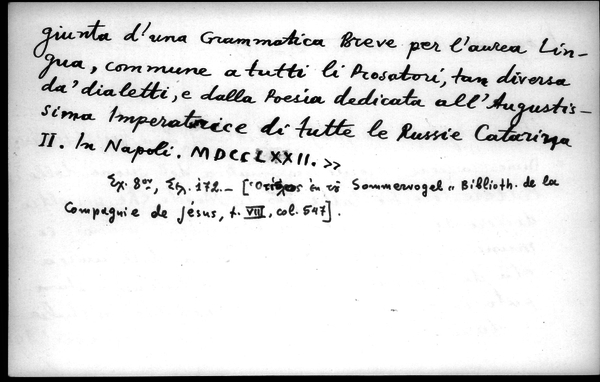 giunta d'una Grammatica Breve per l'aurea Lin-
gua, commune a tutti li Prosatori, tan diversa
da' dialetti, e dalla Poesia dedicata all'Augustis-
sima Imperatrice di tutte le Russie Catarina
II. In Napoli. MDCCLXXII. >>
Σχ. 8ον, Σελ. 172. — [ ἐν τῷ Sommervogel „ Biblioth. de la
Compagnie de Jésus, t. VIII, col. 547].